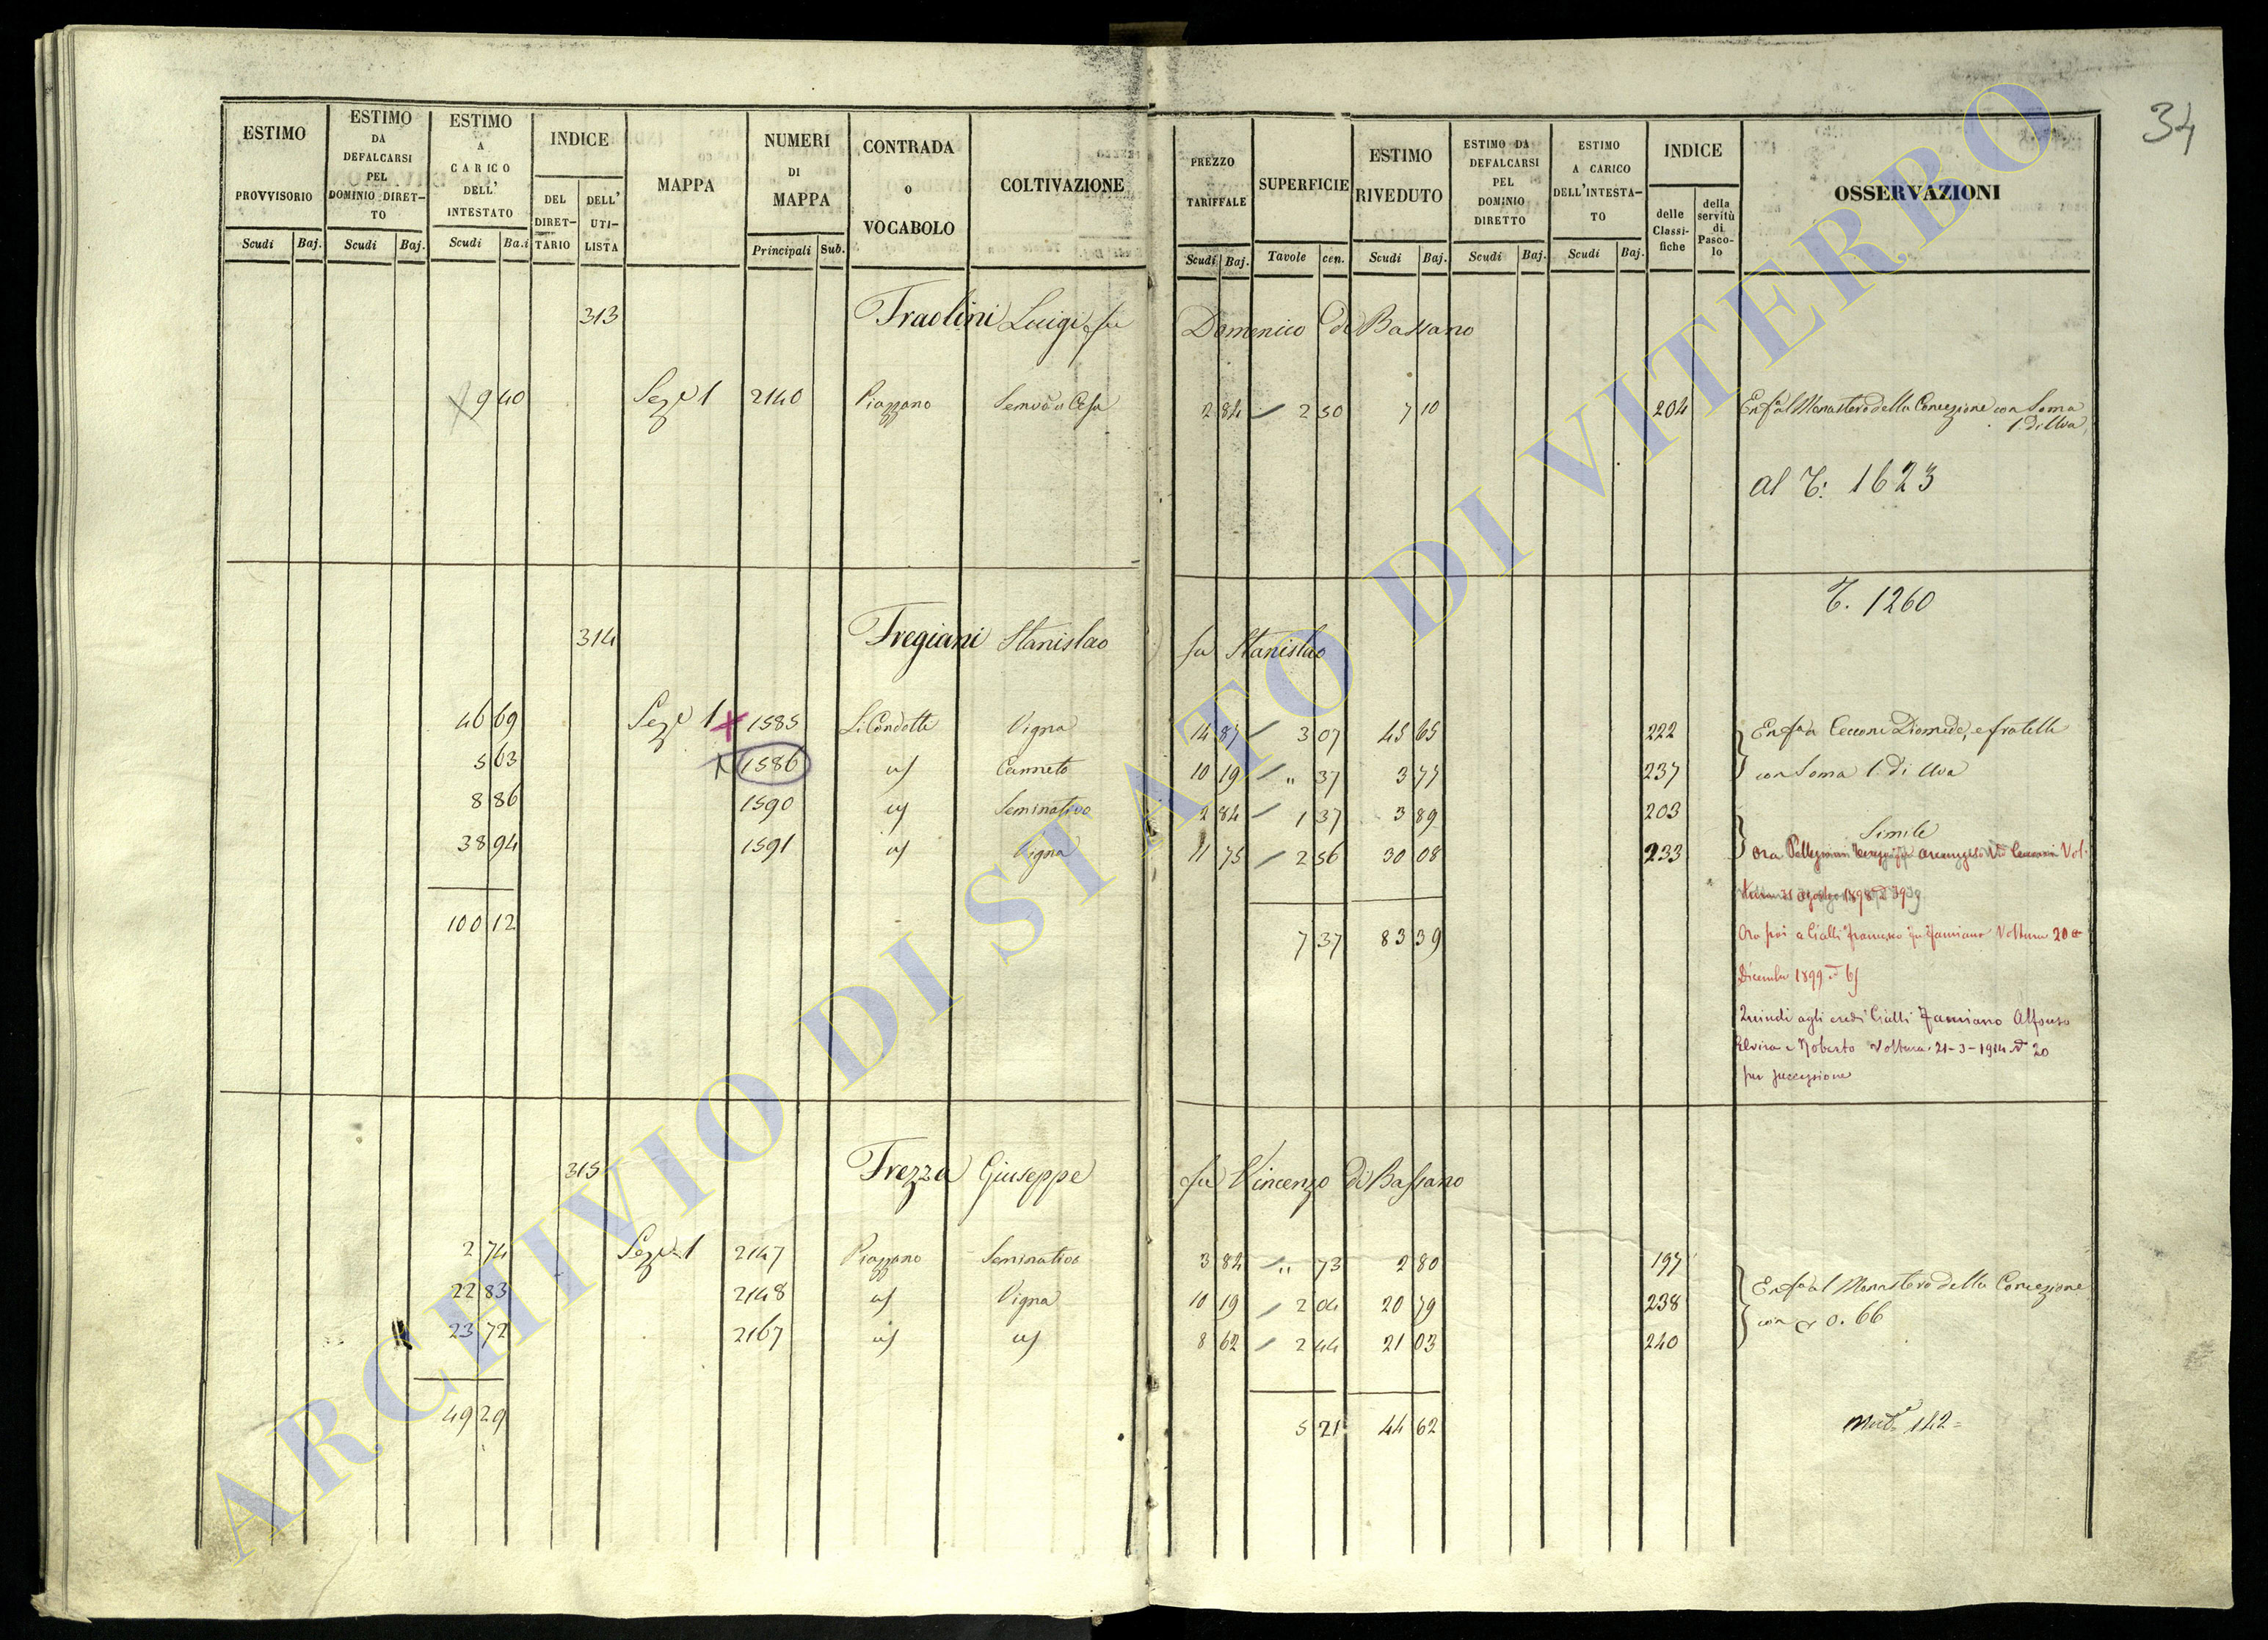 34
ESTIMO PROVVISORIO Scudi Baj.
ESTIMO DA DEFALCARSI PEL DOMINIO DIRET-TO Scudi Baj.
ESTIMO A CARICO DELL' INTESTATO Scudi Ba.i
INDICE DEL DIRET-TARIO DELL' UTI-LISTA
MAPPA
NUMERI DI MAPPA Principali Sub.
CONTRADA o VOCABOLO
COLTIVAZIONE
PREZZO TARIFFALE Scudi Baj.
SUPERFICIE Tavole cen.
ESTIMO RIVEDUTO Scudi Baj.
ESTIMO DA DEFALCARSI PEL DOMINIO DIRETTO Scudi Baj.
ESTIMO A CARICO DELL'INTESTA-TO Scudi Baj.
INDICE delle Classi-fiche della servitù di Pasco-lo
OSSERVAZIONI
313 Fraolini Luigi fu Domenico di Bassano
9 40 Sez.e 1 2140 Piazzano 2 84 2 50 7 10 204 Enf.a al Monastero della Concezione con Soma
1. di Uva
al T: 1623
T. 1260
314 Fregiani Stanislao fu Stanislao
46 69 Sez.e 1 1585 Li Condotti Vigna 14 87 3 07 45 65 222 Enf.a a Cecconi Diomede, e fratelli
5 63 1586 id Canneto 10 19 " 37 3 77 237 con Soma 1. di Uva
8 86 1590 id Seminativo 2 84 1 37 3 89 203
38 94 1591 id Vigna 11 75 2 56 30 08 233 Simile
ora Pellegrini Arcangelo Vol.
31 agosto 1898
100 12 7 37 83 39
Ora poi a Cialli Francesco fu Damiano Voltura 20
Dicembre 1899 N 61
Quindi agli eredi Cialli Damiano Alfonso
Elvira e Roberto Voltura 21-3-1914 N 20
per successione
315 Frezza Giuseppe fu Vincenzo di Bassano
2 74 Sez.e 1 2147 Piazzano Seminativo 3 82 " 73 2 80 197
22 83 2148 id Vigna 10 19 2 04 20 79 238 Enf.a al Monastero della Concezione
23 72 2167 id id 8 62 2 44 21 03 240 con 0. 66
49 29 5 21 44 62 142
ARCHIVIO DI STATO DI VITERBO